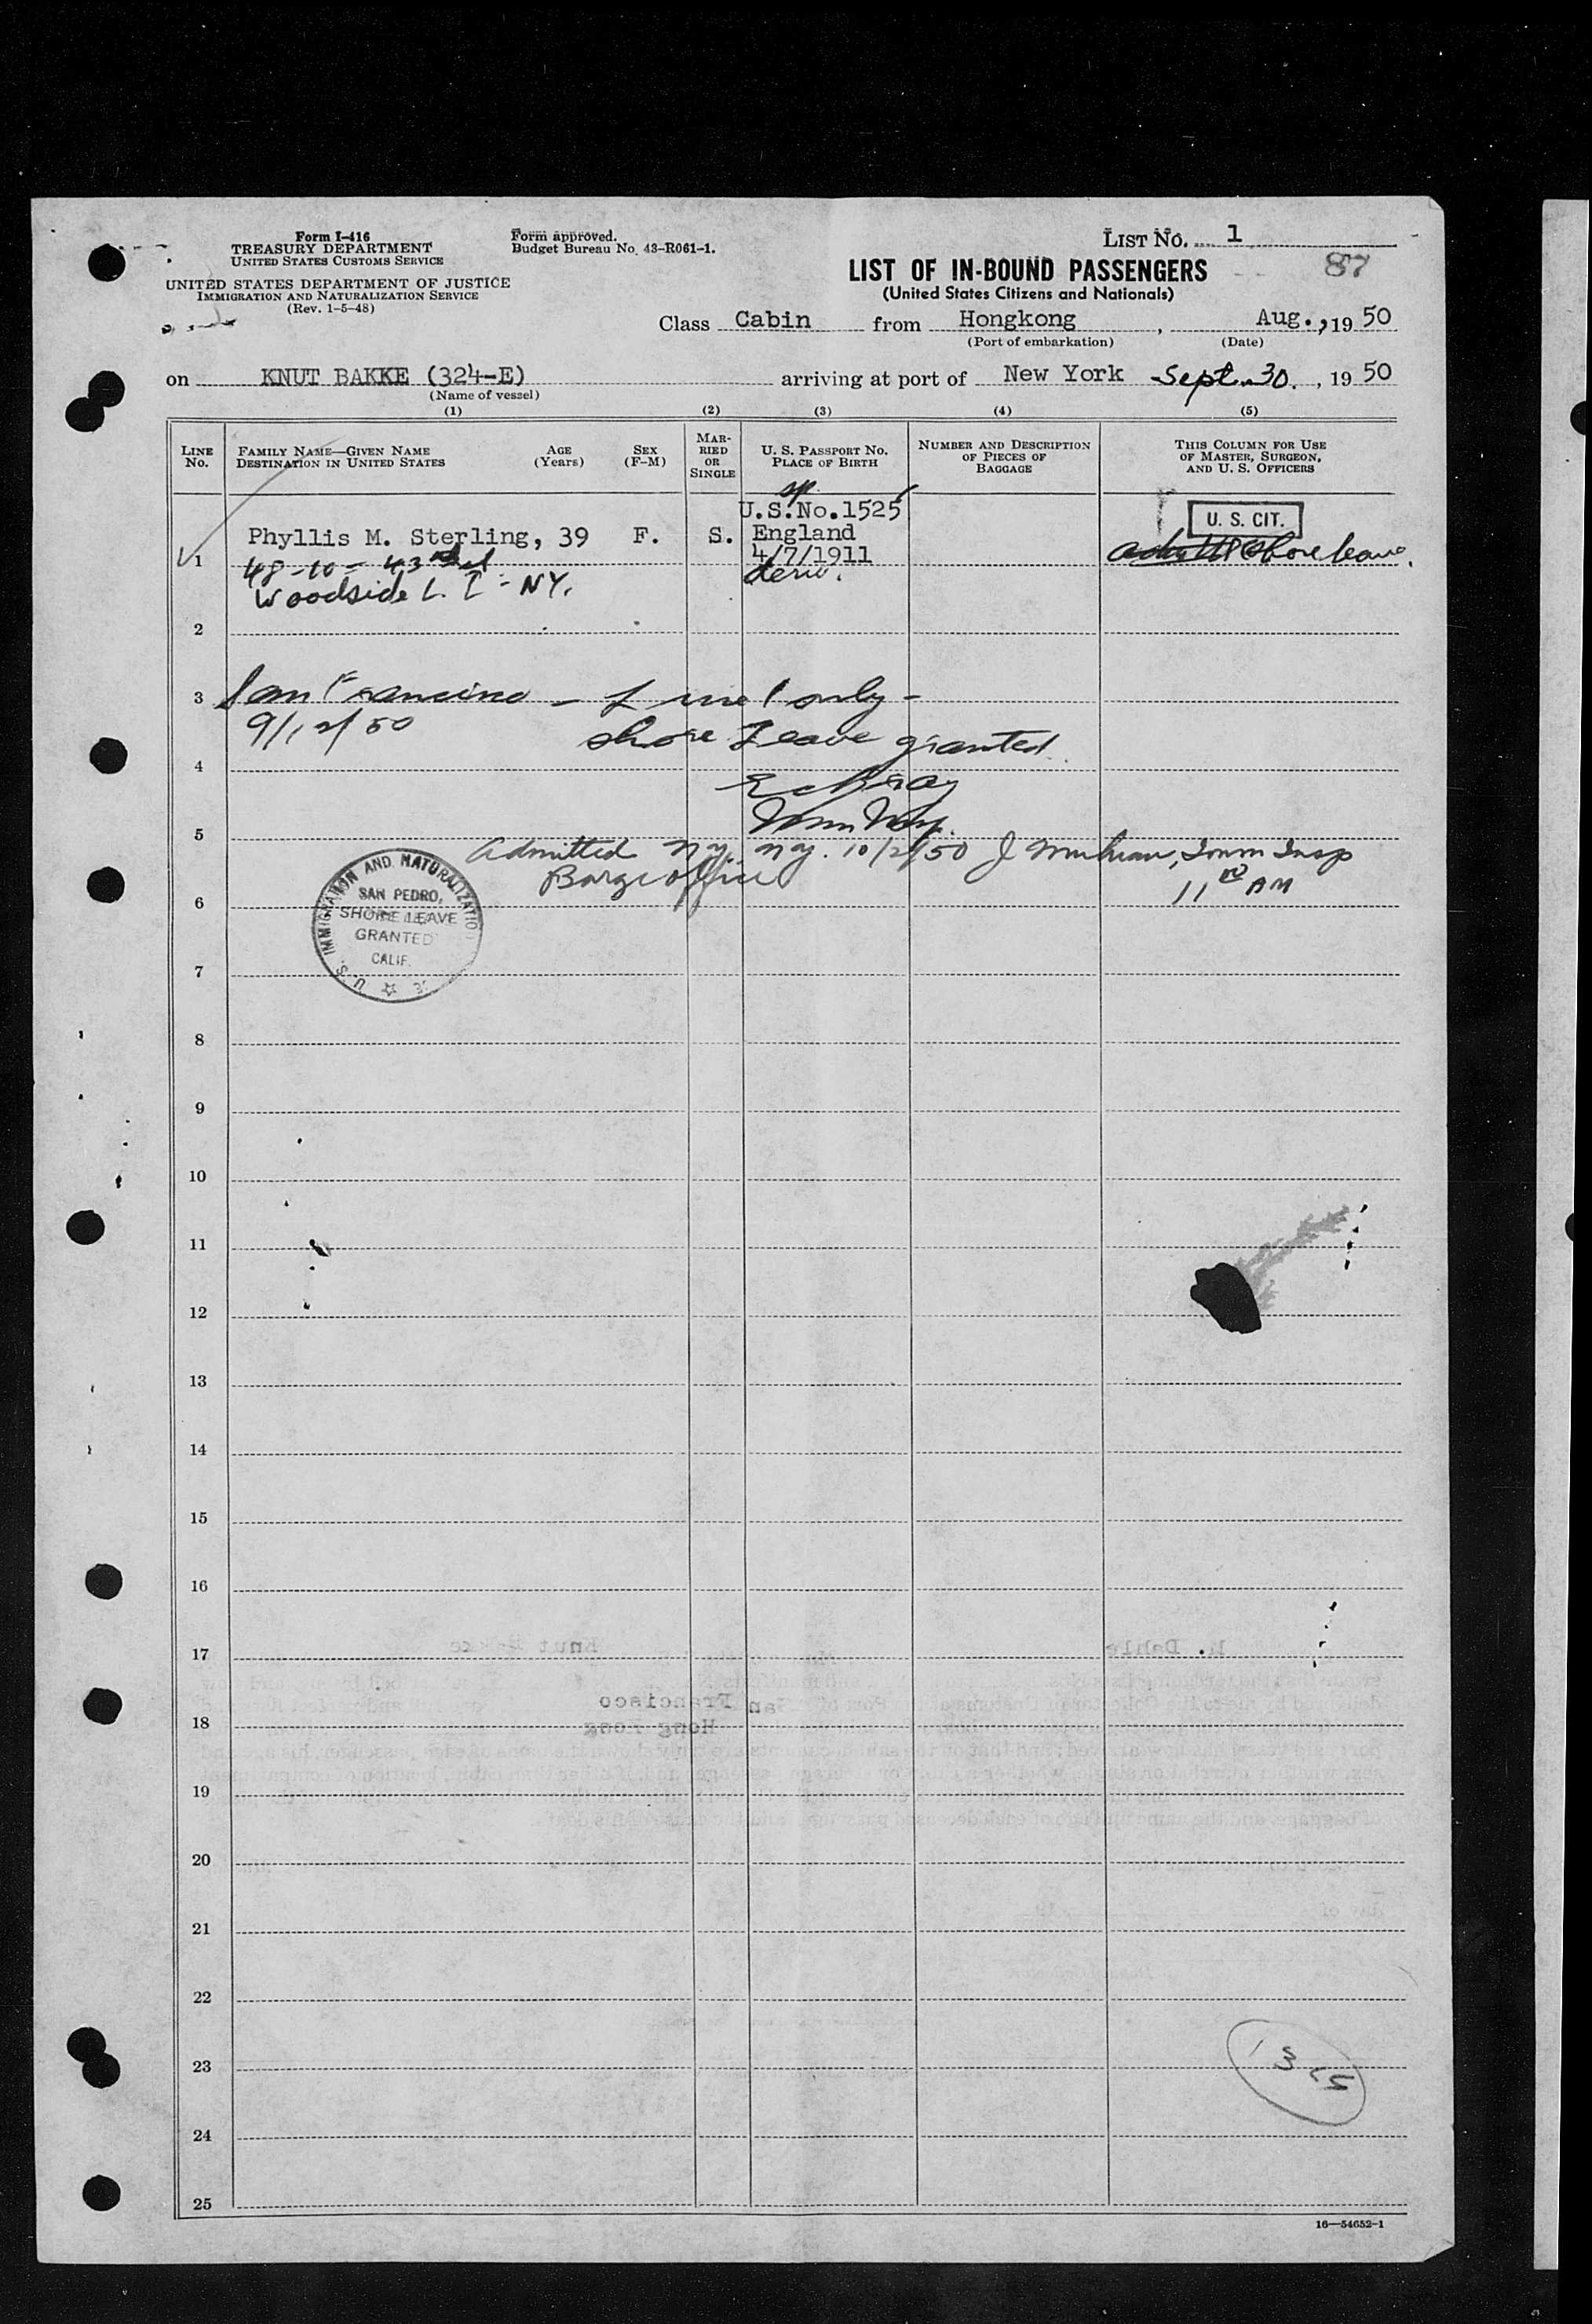 Form I-416
TREASURY DEPARTMENT
UNITED STATES CUSTOMS SERVICE
UNITED STATES DEPARTMENT OF JUSTICE
IMMIGRATION AND NATURALIZATION SERVICE
(Rev. 1-5-48)
Form approved.
Budget Bureau No. 43-R061-1.
LIST NO. 1
87
LIST OF IN-BOUND PASSENGERS
(United States Citizens and Nationals)
Class Cabin from Hongkong, Aug., 19 50
(Port of embarkation) (Date)
on KNUT BAKKE (324-E) arriving at port of New York Sept. 30. , 19 50
(Name of vessel)
(1) (2) (3) (4) (5)
LINE NO.
FAMILY NAME—GIVEN NAME
DESTINATION IN UNITED STATES
AGE (Years)
SEX (F-M)
MARRIED OR SINGLE
U. S. PASSPORT NO.
PLACE OF BIRTH
NUMBER AND DESCRIPTION OF PIECES OF BAGGAGE
THIS COLUMN FOR USE OF MASTER, SURGEON, AND U. S. OFFICERS
sp.
U.S.No.1525
U. S. CIT.
Phyllis M. Sterling, 39 F. S. England
1
4/7/1911
shore leave.
48-10 = 43
deriv.
Woodside L. I - NY.
2
3 San Francisco - Line 1 only -
9/12/50 shore Leave granted
4
5
Admitted N.Y. N.Y. 10/2/50 J Imm Insp
Barge office
11 00 AM
U. S. IMMIGRATION AND NATURALIZATION
SAN PEDRO,
SHORE LEAVE
GRANTED
CALIF.
6
7
8
9
10
11
12
13
14
15
16
17
18
19
20
21
22
23
24
25
16—54652-1